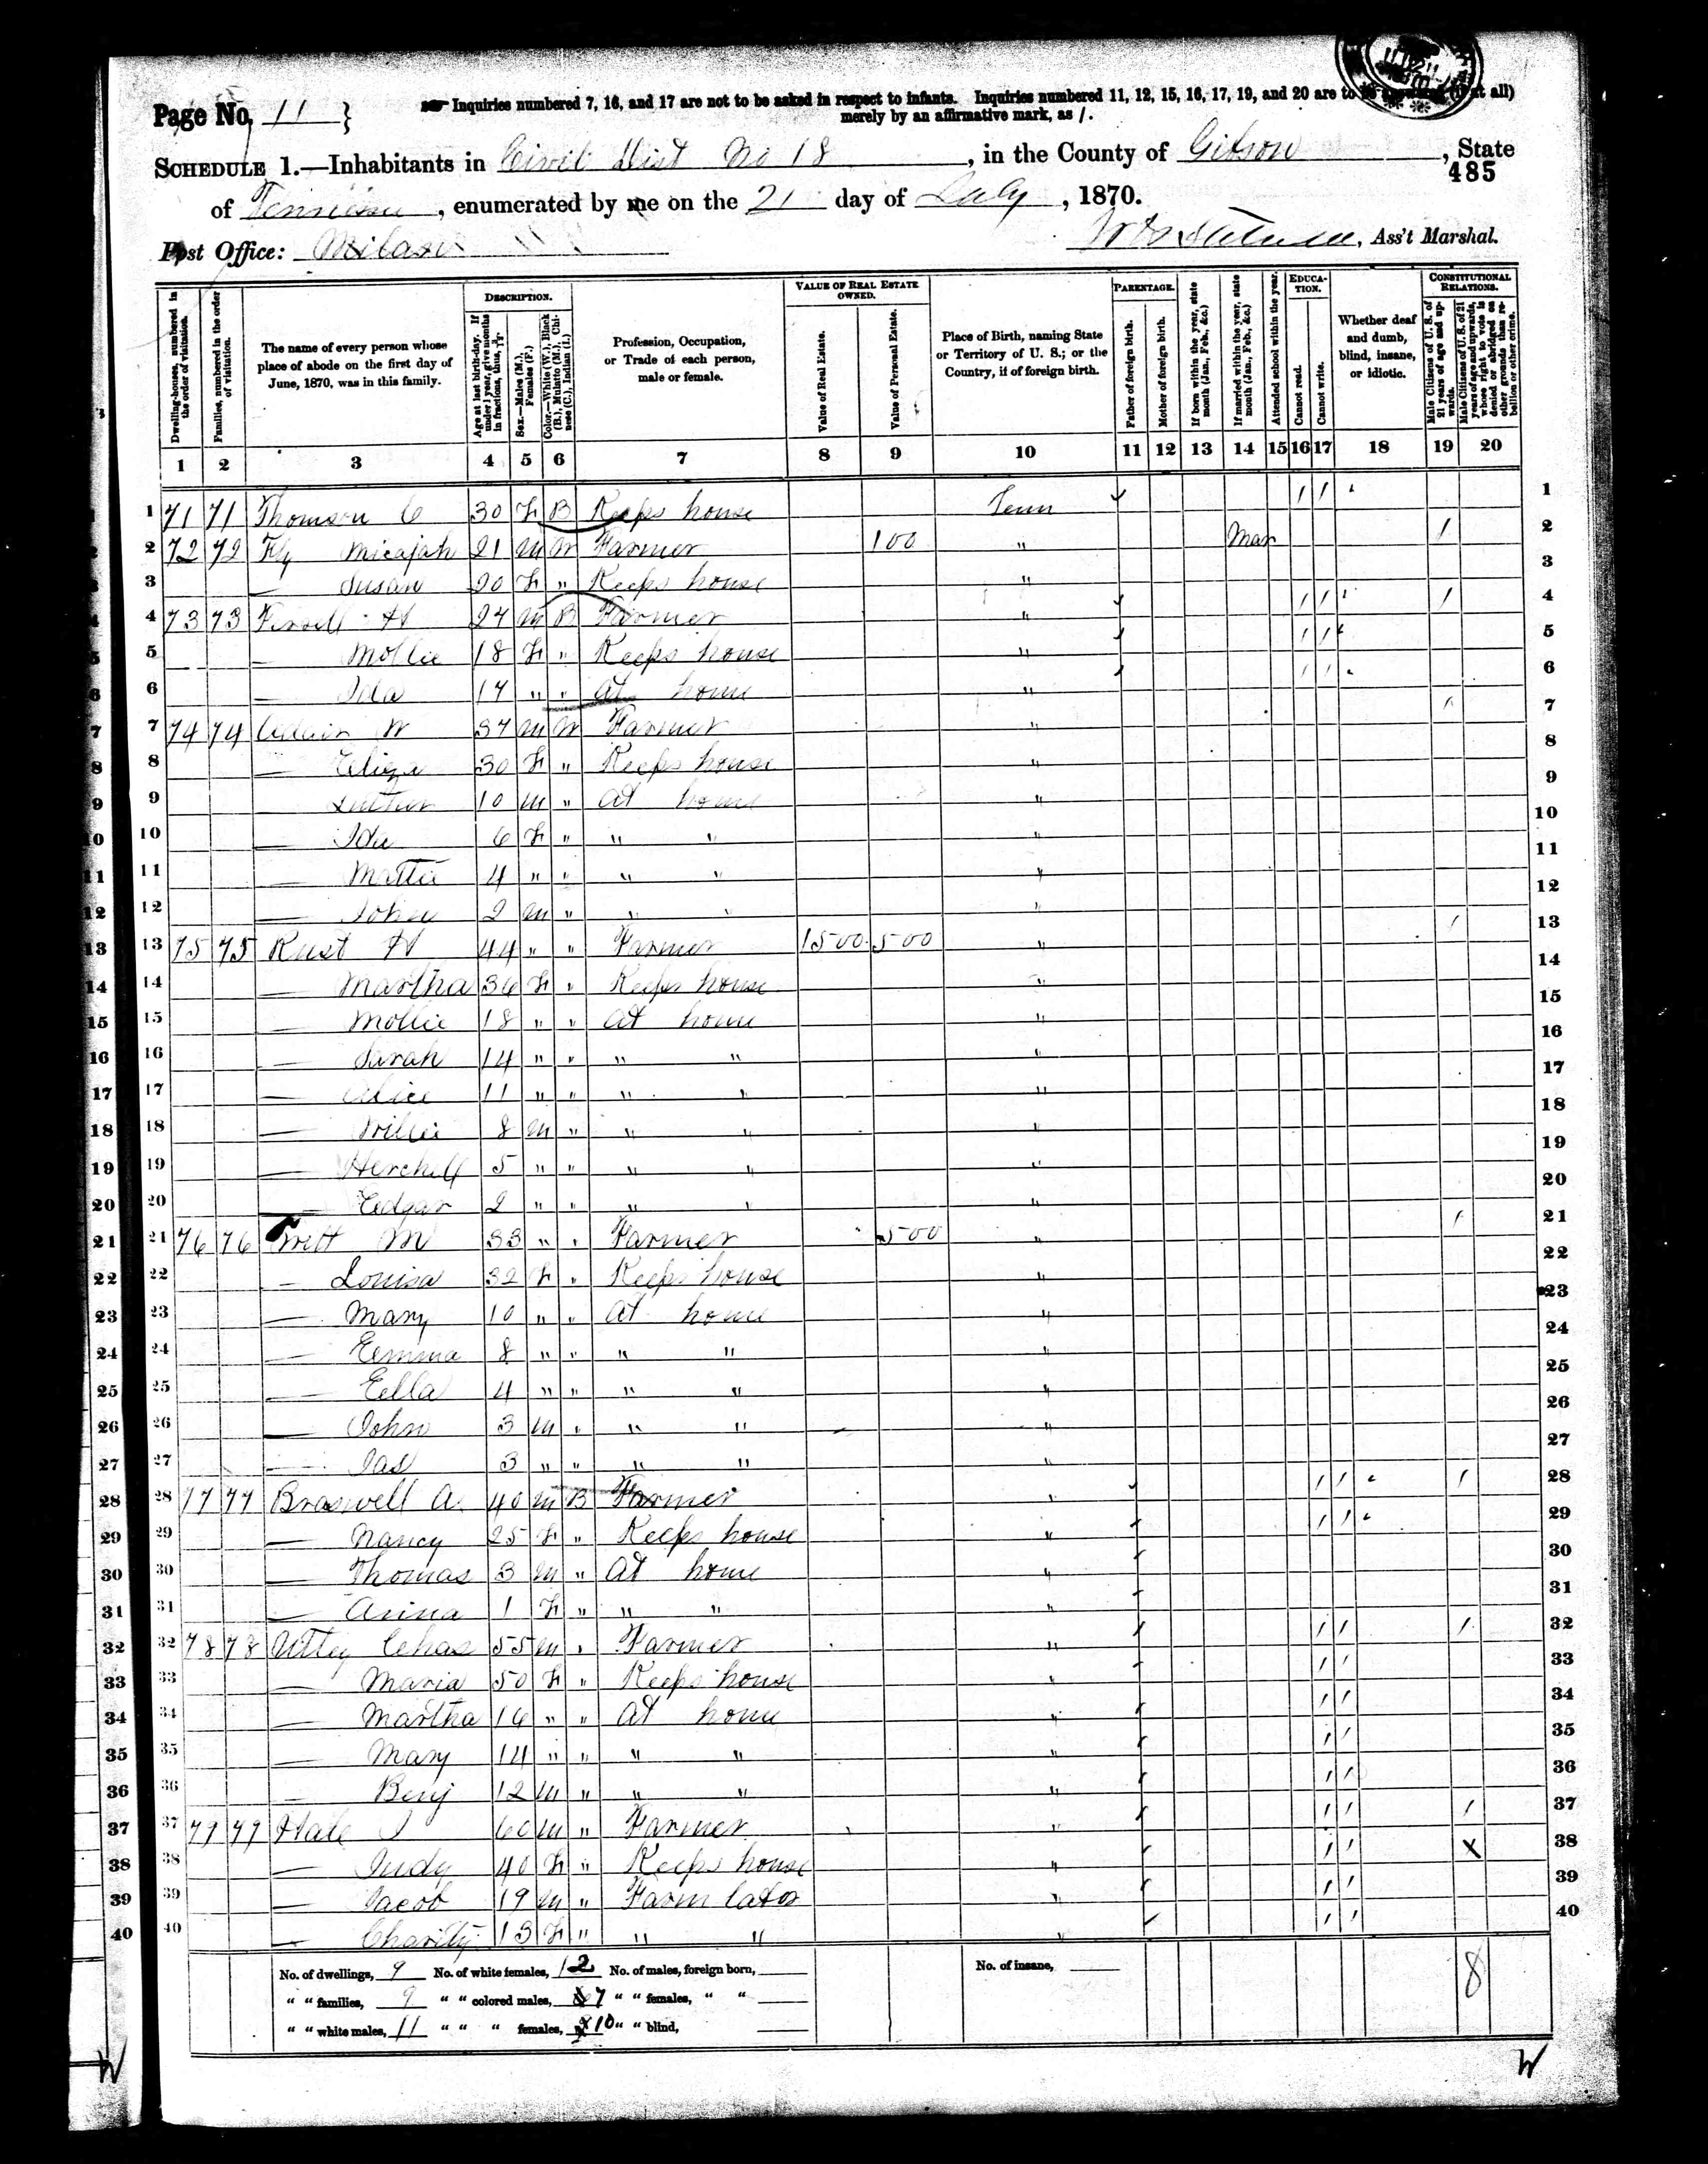 Page No. 11 }
Inquiries numbered 7, 16, and 17 are not to be asked in respect to infants. Inquiries numbered 11, 12, 15, 16, 17, 19, and 20 are to be answered (if at all)
merely by an affirmative mark, as /.
SCHEDULE 1.—Inhabitants in Civil Dist No 18, in the County of Gibson, State
485
of Tennessee, enumerated by me on the 21 day of July, 1870.
Post Office: Milan
Ass't Marshal.
Dwelling-houses, numbered in the order of visitation.
Families, numbered in the order of visitation.
The name of every person whose place of abode on the first day of June, 1870, was in this family.
DESCRIPTION.
Age at last birth-day. If under 1 year, give months in fractions, thus, 3/12.
Sex.—Males (M.), Females (F.)
Color.—White (W.), Black (B.), Mulatto (M.), Chinese (C.), Indian (I.)
Profession, Occupation, or Trade of each person, male or female.
VALUE OF REAL ESTATE OWNED.
Value of Real Estate.
Value of Personal Estate.
Place of Birth, naming State or Territory of U. S.; or the Country, if of foreign birth.
PARENTAGE.
Father of foreign birth.
Mother of foreign birth.
If born within the year, state month (Jan., Feb., &c.)
If married within the year, state month (Jan., Feb., &c.)
Attended school within the year.
EDUCATION.
Cannot read.
Cannot write.
Whether deaf and dumb, blind, insane, or idiotic.
CONSTITUTIONAL RELATIONS.
Male Citizens of U. S. of 21 years of age and upwards.
Male Citizens of U. S. of 21 years of age and upwards, whose right to vote is denied or abridged on other grounds than rebellion or other crime.
1 2 3 4 5 6 7 8 9 10 11 12 13 14 15 16 17 18 19 20
1 71 71 Thomson C 30 F B Keeps house Tenn / / / 1
2 72 72 Fly Micajah 21 M W Farmer 100 " Mar / 2
3 — Susan 20 F " Keeps house " 3
4 73 73 H 27 M B Farmer " / / / / 4
5 — Mollie 18 F " Keeps house " / / / 5
6 — Ida 17 " " At home " / / / 6
7 74 74 Adair W 37 M W Farmer " / 7
8 — Eliza 30 F " Keeps house " 8
9 — Luther 10 M " At home " 9
10 — Ida 6 F " " " " 10
11 — Mattie 4 " " " " " 11
12 — John 2 M " " " " 12
13 75 75 Rust H 44 " " Farmer 1500 500 " / 13
14 — Martha 36 F " Keeps house " 14
15 — Mollie 18 " " At home " 15
16 — Sarah 14 " " " " " 16
17 — Alice 11 " " " " " 17
18 — Willie 8 M " " " " 18
19 — Herchell 5 " " " " " 19
20 — Edgar 2 " " " " " 20
21 76 76 M 33 " " Farmer 500 " / 21
22 — Louisa 32 F " Keeps house " 22
23 — Mary 10 " " At home " 23
24 — Emma 8 " " " " " 24
25 — Eella 4 " " " " " 25
26 — John 3 M " " " " 26
27 — Jas 3 " " " " " 27
28 77 77 Braswell A. 40 M B Farmer " / / / / 28
29 — Nancy 25 F " Keeps house " / / / 29
30 — Thomas 3 M " At home " / 30
31 — Anna 1 F " " " " / 31
32 78 78 Utley Chas 55 M " Farmer " / / / / 32
33 — Maria 50 F " Keeps house " / / / 33
34 — Martha 16 " " At home " / / / 34
35 — Mary 14 " " " " " / / / 35
36 — Benj 12 M " " " " / / / 36
37 79 79 Hale J 60 M " Farmer " / / / / 37
38 — Judy 40 F " Keeps house " / / / X 38
39 — Jacob 19 M " Farm labor " / / / 39
40 — Charity 13 F " " " " / / / 40
No. of dwellings, 9 No. of white females, 12 No. of males, foreign born, No. of insane, 8
" " families, 9 " " colored males, 7 " " females, " "
" " white males, 11 " " " females, 10 " " blind,
W W